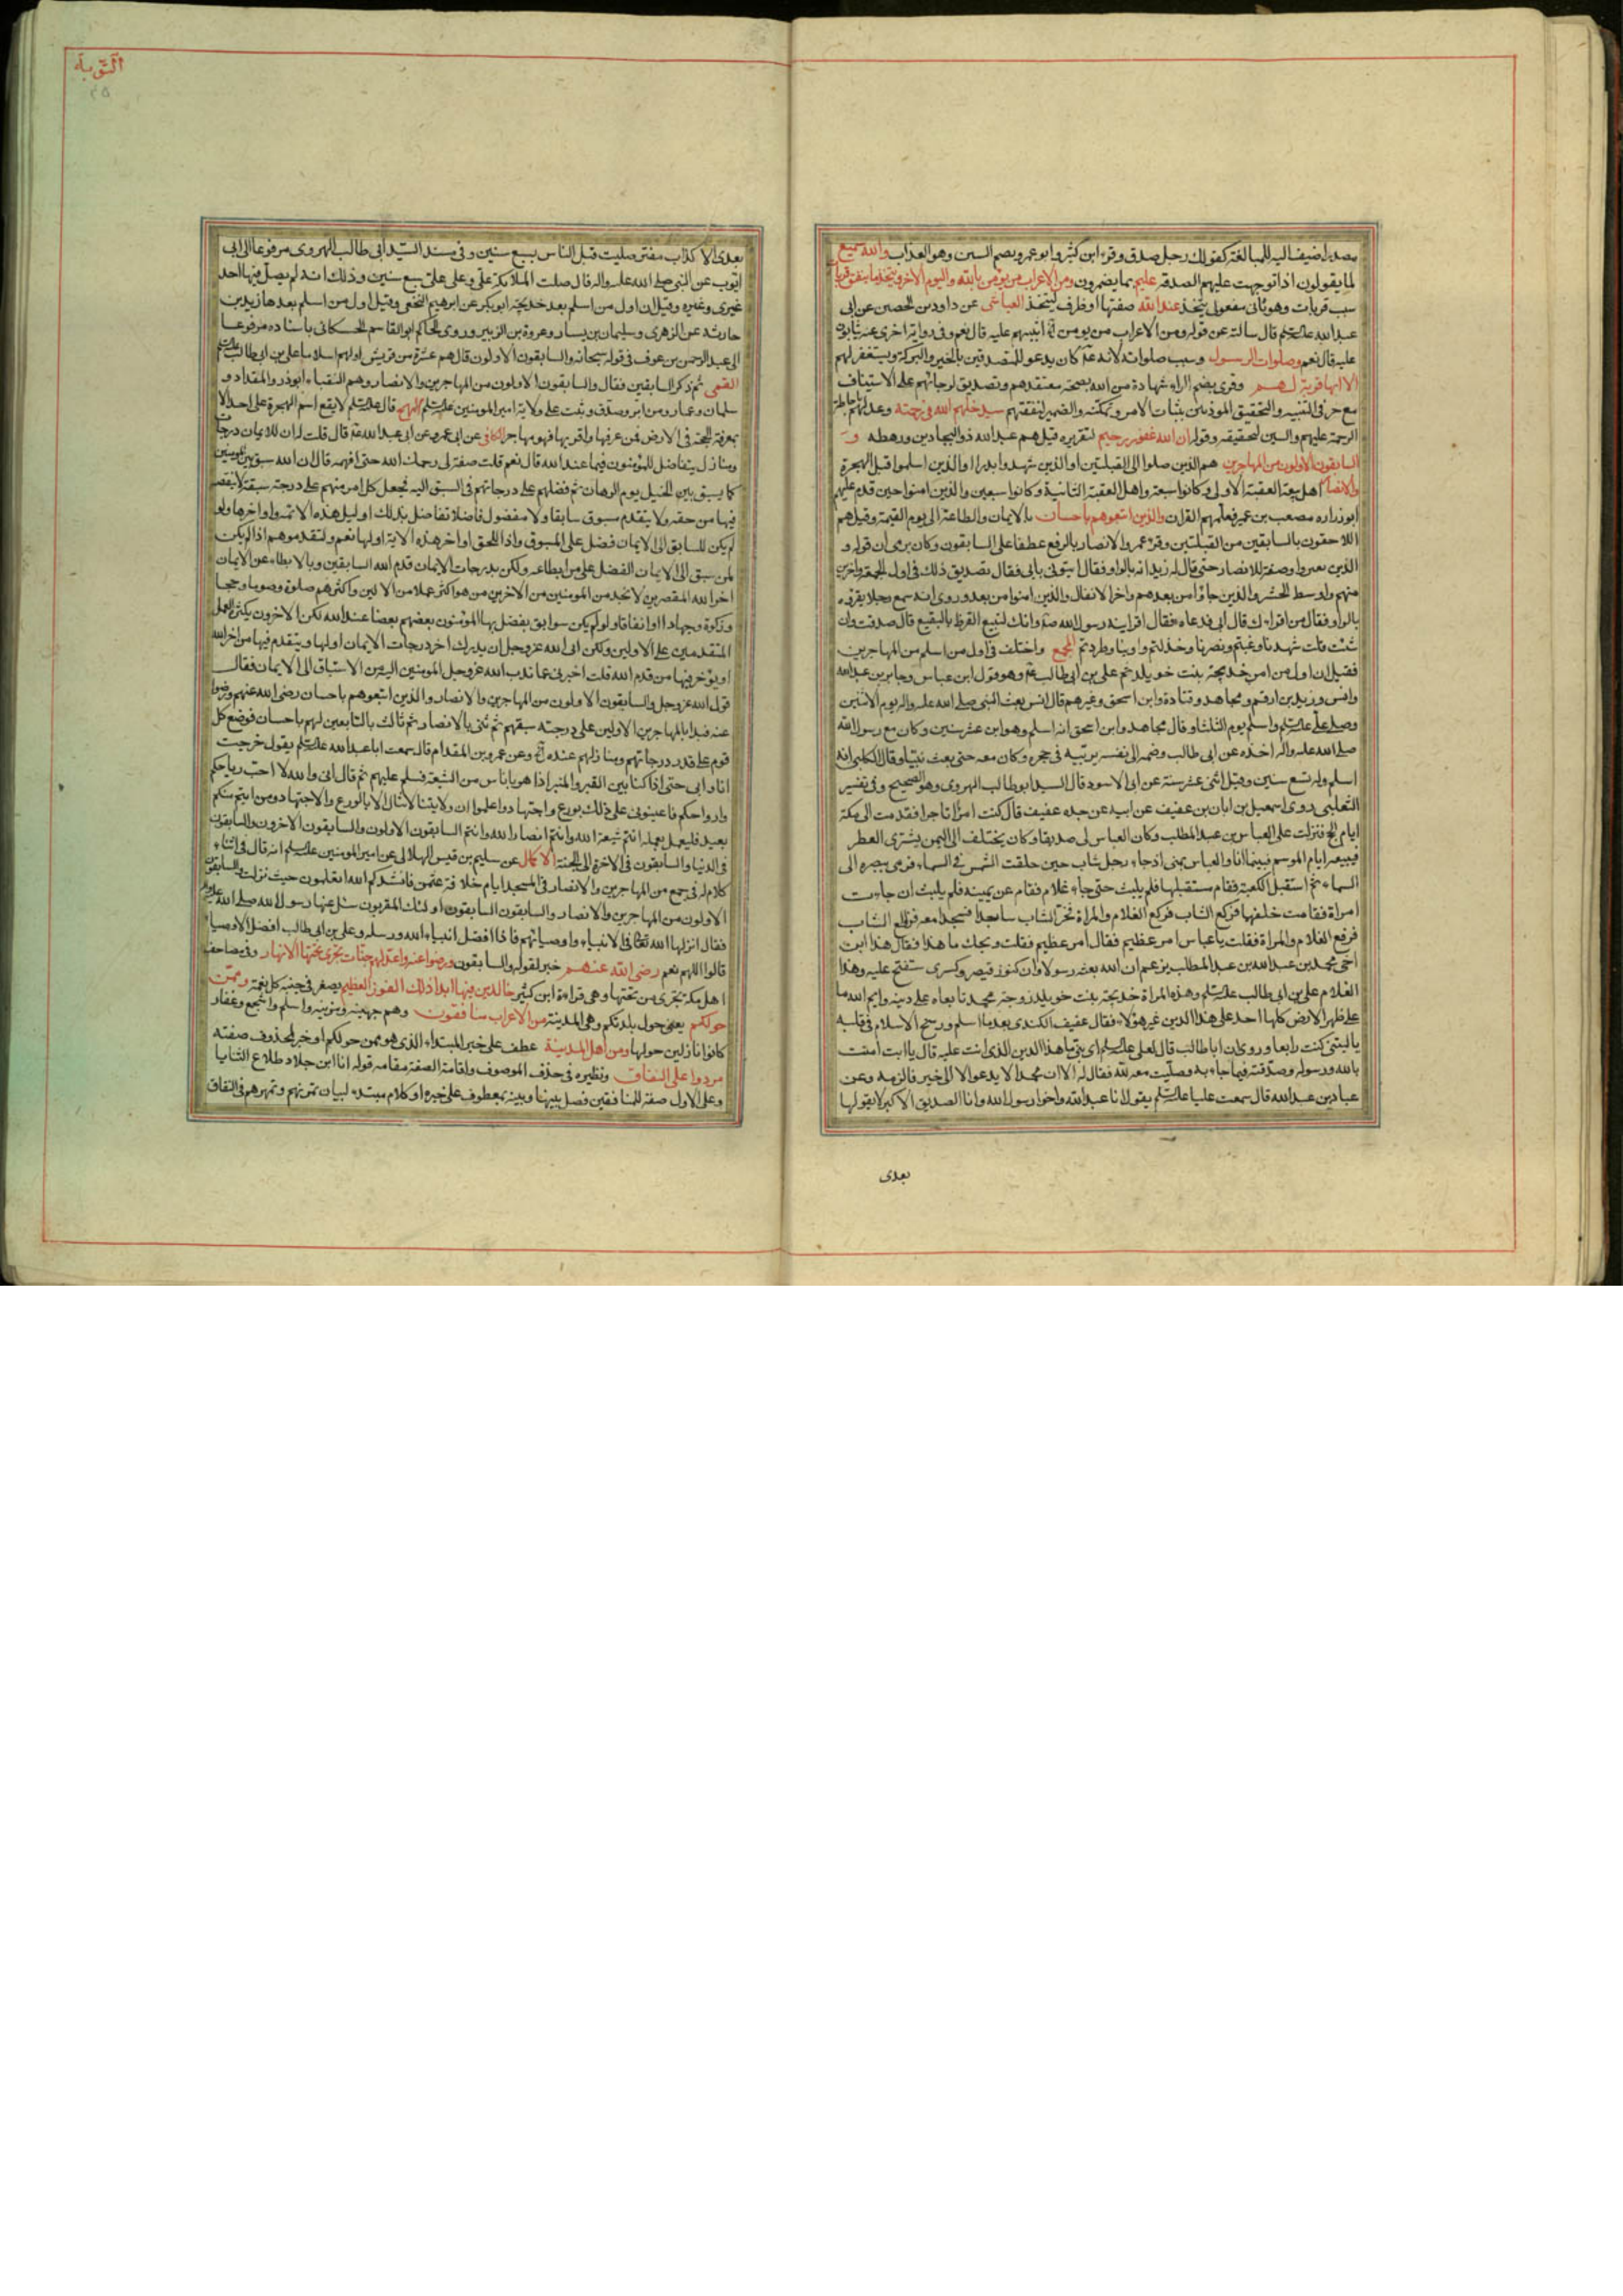 مصدر اضيف اليه للمبالغة كقولك رجل صدق وقرء ابن كثير وابو عمرو بضم السين وهو العذاب والله سميع
لما يقولون اذا توجهت عليهم الصدقة عليم بما يضمرون ومن الاعراب من يؤمن بالله واليوم الآخر ويتخذ ما ينفق قربات
سبب قربات وهو ثانى مفعولى يتخذ عند الله صفتها او ظرف ليتخذ العياشى عن داود بن الحصين عن ابى
عبد الله علیه السلم قال سالته عن قوله ومن الاعراب من يومن آه ايثيبهم عليه قال نعم وفى رواية اخرى عنه يثابون
عليه قال نعم وصلوات الرسول وسبب صلواته لانه عم كان يدعو للمتصدقين بالخير والبركة ويستغفر لهم
الا انها قربة لهم وقرى بضم الراء شهادة من الله بصحة معتقدهم وتصديق لرجائهم على الاستيناف
مع حرفى التنبيه والتحقيق الموذنين بثبات الامر وتمكنه والضمير لنفقتهم سيدخلهم الله فى رحمته وعد لهم باحاطة
الرحمة عليهم والسين لتحقيقه وقوله ان الله غفور رحيم لتقريره قيل هم عبد الله ذو البجادين ورهطه و
السابقون الاولون من المهاجرين هم الذين صلوا الى القبلتين او الذين شهدوا بدرا او الذين اسلموا قبل الهجرة
والانصار اهل بيعة العقبة الاولى وكانوا سبعة واهل العقبة الثانية وكانوا سبعين والذين امنوا حين قدم عليهم
ابو زراره مصعب بن عمير فعلمهم القران والذين اتبعوهم باحسان بالايمان والطاعة الى يوم القيمة وقيل هم
اللاحقون بالسابقين من القبلتين وقرء عمر والانصار بالرفع عطفا على السابقون وكان يرى ان قوله و
الذين بغير واو صفة للانصار حتى قال له زيد انه بالواو فقال ايتونى بابى فقال تصديق ذلك فى اول الجمعة وآخرين
منهم واوسط الحشر والذين جاؤا من بعدهم واخر الانفال والذين امنوا من بعد وروى انه سمع رجلا يقرؤه
بالواو فقال من اقراك قال ابى فدعاه فقال اقرانيه رسول الله ص وانك لتبيع القرظ بالبقيع قال صدقت وان
شئت قلت شهدنا وغبتم ونصرنا وخذلتم واوينا وطردتم المجمع واختلف فى اول من اسلم من المهاجرين
فقيل ان اول من امن خديجة بنت خويلد ثم على بن ابى طالب عم وهو قول ابن عباس وجابر بن عبد الله
وانس وزيد بن ارقم ومجاهد وقتادة وابن اسحق وغيرهم قال انس بعث النبى صلى الله عليه واله يوم الاثنين
وصلى على علیه السلم واسلم يوم الثلثا وقال مجاهد وابن اسحق انه اسلم وهو ابن عشر سنين وكان مع رسول الله
صلى الله عليه واله اخذه عن ابى طالب وضمه الى نفسه يربيه فى حجره وكان معه حتى بعث نبيا وقال الكلبى انه
اسلم وله تسع سنين وقيل اثنى عشر سنة عن ابى الاسود قال السيد ابو طالب الهروى وهو الصحيح وفى تفسير
الثعلبى روى اسمعيل بن اياس بن عفيف عن ابيه عن جده عفيف قال كنت امرأ تاجرا فقدمت الى مكة
ايام الحج فنزلت على العباس بن عبد المطلب وكان العباس لى صديقا وكان يختلف الى اليمن يشترى العطر
فيبيعه ايام الموسم فبينما انا والعباس بمنى اذ جاء رجل شاب حين حلقت الشمس فى السماء فرمى ببصره الى
السماء ثم استقبل الكعبة فقام مستقبلها فلم يلبث حتى جاء غلام فقام عن يمينه فلم يلبث ان جاءت
امراة فقامت خلفهما فركع الشاب فركع الغلام والمراة فخر الشاب ساجدا فسجدا معه فرفع الشاب
فرفع الغلام والمراة فقلت يا عباس امر عظيم فقال امر عظيم فقلت ويحك ما هذا فقال هذا ابن
اخى محمد بن عبد الله بن عبد المطلب يزعم ان الله بعثه رسولا وان كنوز قيصر وكسرى ستفتح عليه وهذا
الغلام على بن ابى طالب علیه السلم وهذه المراة خديجة بنت خويلد زوجة محمد تابعاه على دينه وايم الله ما
على ظهر الارض كلها احد على هذا الدين غير هؤلاء فقال عفيف الكندى بعد ما اسلم ورسخ الاسلام فى قلبه
يا ليتنى كنت رابعا وروى ان ابا طالب قال لعلى علیه السلم اى بنى ما هذا الدين الذى انت عليه قال يا ابت امنت
بالله ورسوله وصدقته فيما جاء به وصليت معه لله فقال له الا ان محمدا لا يدعو الا الى خير فالزمه وعن
عباد بن عبد الله قال سمعت عليا علیه السلم يقول انا عبد الله واخو رسول الله وانا الصديق الاكبر لا يقولها
بعدى
التوبة
بعدى الا كذاب مفتر صليت قبل الناس بسبع سنين وفى مسند السيد ابى طالب الهروى مرفوعا الى ابى
ايوب عن النبى صلى الله عليه واله قال صلت الملائكة على وعلى على سبع سنين وذلك انه لم يصل فيها احد
غيرى وغيره وقيل ان اول من اسلم بعد خديجة ابو بكر عن ابرهيم النخعى وقيل اول من اسلم بعدها زيد بن
حارثه عن الزهرى وسليمان بن يسار وعروة بن الزبير وروى الحاكم ابو القاسم الحسكانى باسناده مرفوعا
الى عبد الرحمن بن عوف فى قوله سبحانه والسابقون الاولون قال هم عشرة من قريش اولهم اسلاما على بن ابى طالب علیه السلم
القمى ثم ذكر السابقين فقال والسابقون الاولون من المهاجرين والانصار وهم النقباء ابو ذر والمقداد و
سلمان وعمار ومن امن وصدق وثبت على ولاية امير المومنين علیه السلم النهج قال علیه السلم لا يقع اسم الهجرة على احد الا
بمعرفة الحجة فى الارض فمن عرفها واقر بها فهو مهاجر الكافى عن ابى عمرو عن ابى عبد الله عم قال قلت له ان للايمان درجات
ومنازل يتفاضل المؤمنون فيها عند الله قال نعم قلت صفه لى رحمك الله حتى افهمه قال ان الله سبق بين المومنين
كما يسبق بين الخيل يوم الرهان ثم فضلهم على درجاتهم فى السبق اليه فجعل كل امر منهم على درجة سبقه لا ينقصه
فيها من حقه ولا يتقدم مسبوق سابقا ولا مفضول فاضلا تفاضل بذلك اوايل هذه الامة واواخرها ولو
لم يكن للسابق الى الايمان فضل على المسبوق واذا للحق اواخر هذه الامة اولها نعم ولتقدموهم اذا لم يكن
لمن سبق الى الايمان الفضل على من ابطا عنه ولكن بدرجات الايمان قدم الله السابقين وبالابطاء عن الايمان
اخر الله المقصرين لانا نجد من المومنين من الاخرين من هو اكثر عملا من الاولين واكثرهم صلوة وصوما وحجا
وزكوة وجهادا وانفاقا ولو لم يكن سوابق يفضل بها المؤمنون بعضهم بعضا عند الله لكن الاخرون بكثرة العمل
المتقدمين على الاولين ولكن ابى الله عز وجل ان يدرك اخر درجات الايمان اولها ويتقدم فيها من اخر الله
او يؤخر فيها من قدم الله قلت اخبرنى عما ندب الله عز وجل المومنين اليه من الاستباق الى الايمان فقال
قول الله عز وجل والسابقون الاولون من المهاجرين والانصار والذين اتبعوهم باحسان رضى الله عنهم ورضوا
عنه فبدا بالمهاجرين الاولين على درجة سبقهم ثم ثنى بالانصار ثم ثالث بالتابعين لهم باحسان فوضع كل
قوم على قدر درجاتهم ومنازلهم عنده آه وعن عمرو بن المقدام قال سمعت ابا عبد الله علیه السلم يقول خرجت
انا وابى حتى اذا كنا بين القبر والمنبر اذا هو باناس من الشيعة فسلم عليهم ثم قال انى والله لاحب رياحكم
وارواحكم فاعينونى على ذلك بورع واجتهاد واعلموا ان ولايتنا لا تنال الا بالورع والاجتهاد ومن ايتم منكم
بعبد فليعمل بعمله انتم شيعة الله وانتم انصار الله وانتم السابقون الاولون والسابقون الاخرون والسابقون
فى الدنيا والسابقون فى الاخرة الى الجنة الاكمال عن سليم بن قيس الهلالى عن امير المومنين علیه السلم انه قال فى اثناء
كلام له فى جمع من المهاجرين والانصار فى المسجد ايام خلافة عثمن فانشدكم الله اتعلمون حيث نزلت والسابقون
الاولون من المهاجرين والانصار والسابقون السابقون اولئك المقربون سئل عنها رسول الله صلى الله عليه واله
فقال انزلها الله تعالى فى الانبياء واوصيائهم فانا افضل انبياء الله ورسله وعلى بن ابى طالب افضل الاوصياء
قالوا اللهم نعم رضى الله عنهم خبر لقوله والسابقون ورضوا عنه واعد لهم جنات تجرى تحتها الانهار وفى مصاحف
اهل مكة تجرى من تحتها وهى قراءة ابن كثير خالدين فيها ابدا ذلك الفوز العظيم يصغر فى جنبه كل نعمة وممن
حولكم يعنى حول بلدتكم وهى المدينة من الاعراب منافقون وهم جهينه ومزينه واسلم واشجع وغفار
كانوا نازلين حولها ومن اهل المدينة عطف على خبر المبتداء الذى هو ممن حولكم او خبر لمحذوف صفته
مردوا على النفاق ونظيره فى حذف الموصوف واقامة الصفة مقامه قوله انا ابن جلا وطلاع الثنايا
وعلى الاول صفة للمنافقين فصل بينها وبينه بمعطوف على خبره او كلام مبتدء لبيان تمرنهم وتمهرهم فى النفاق